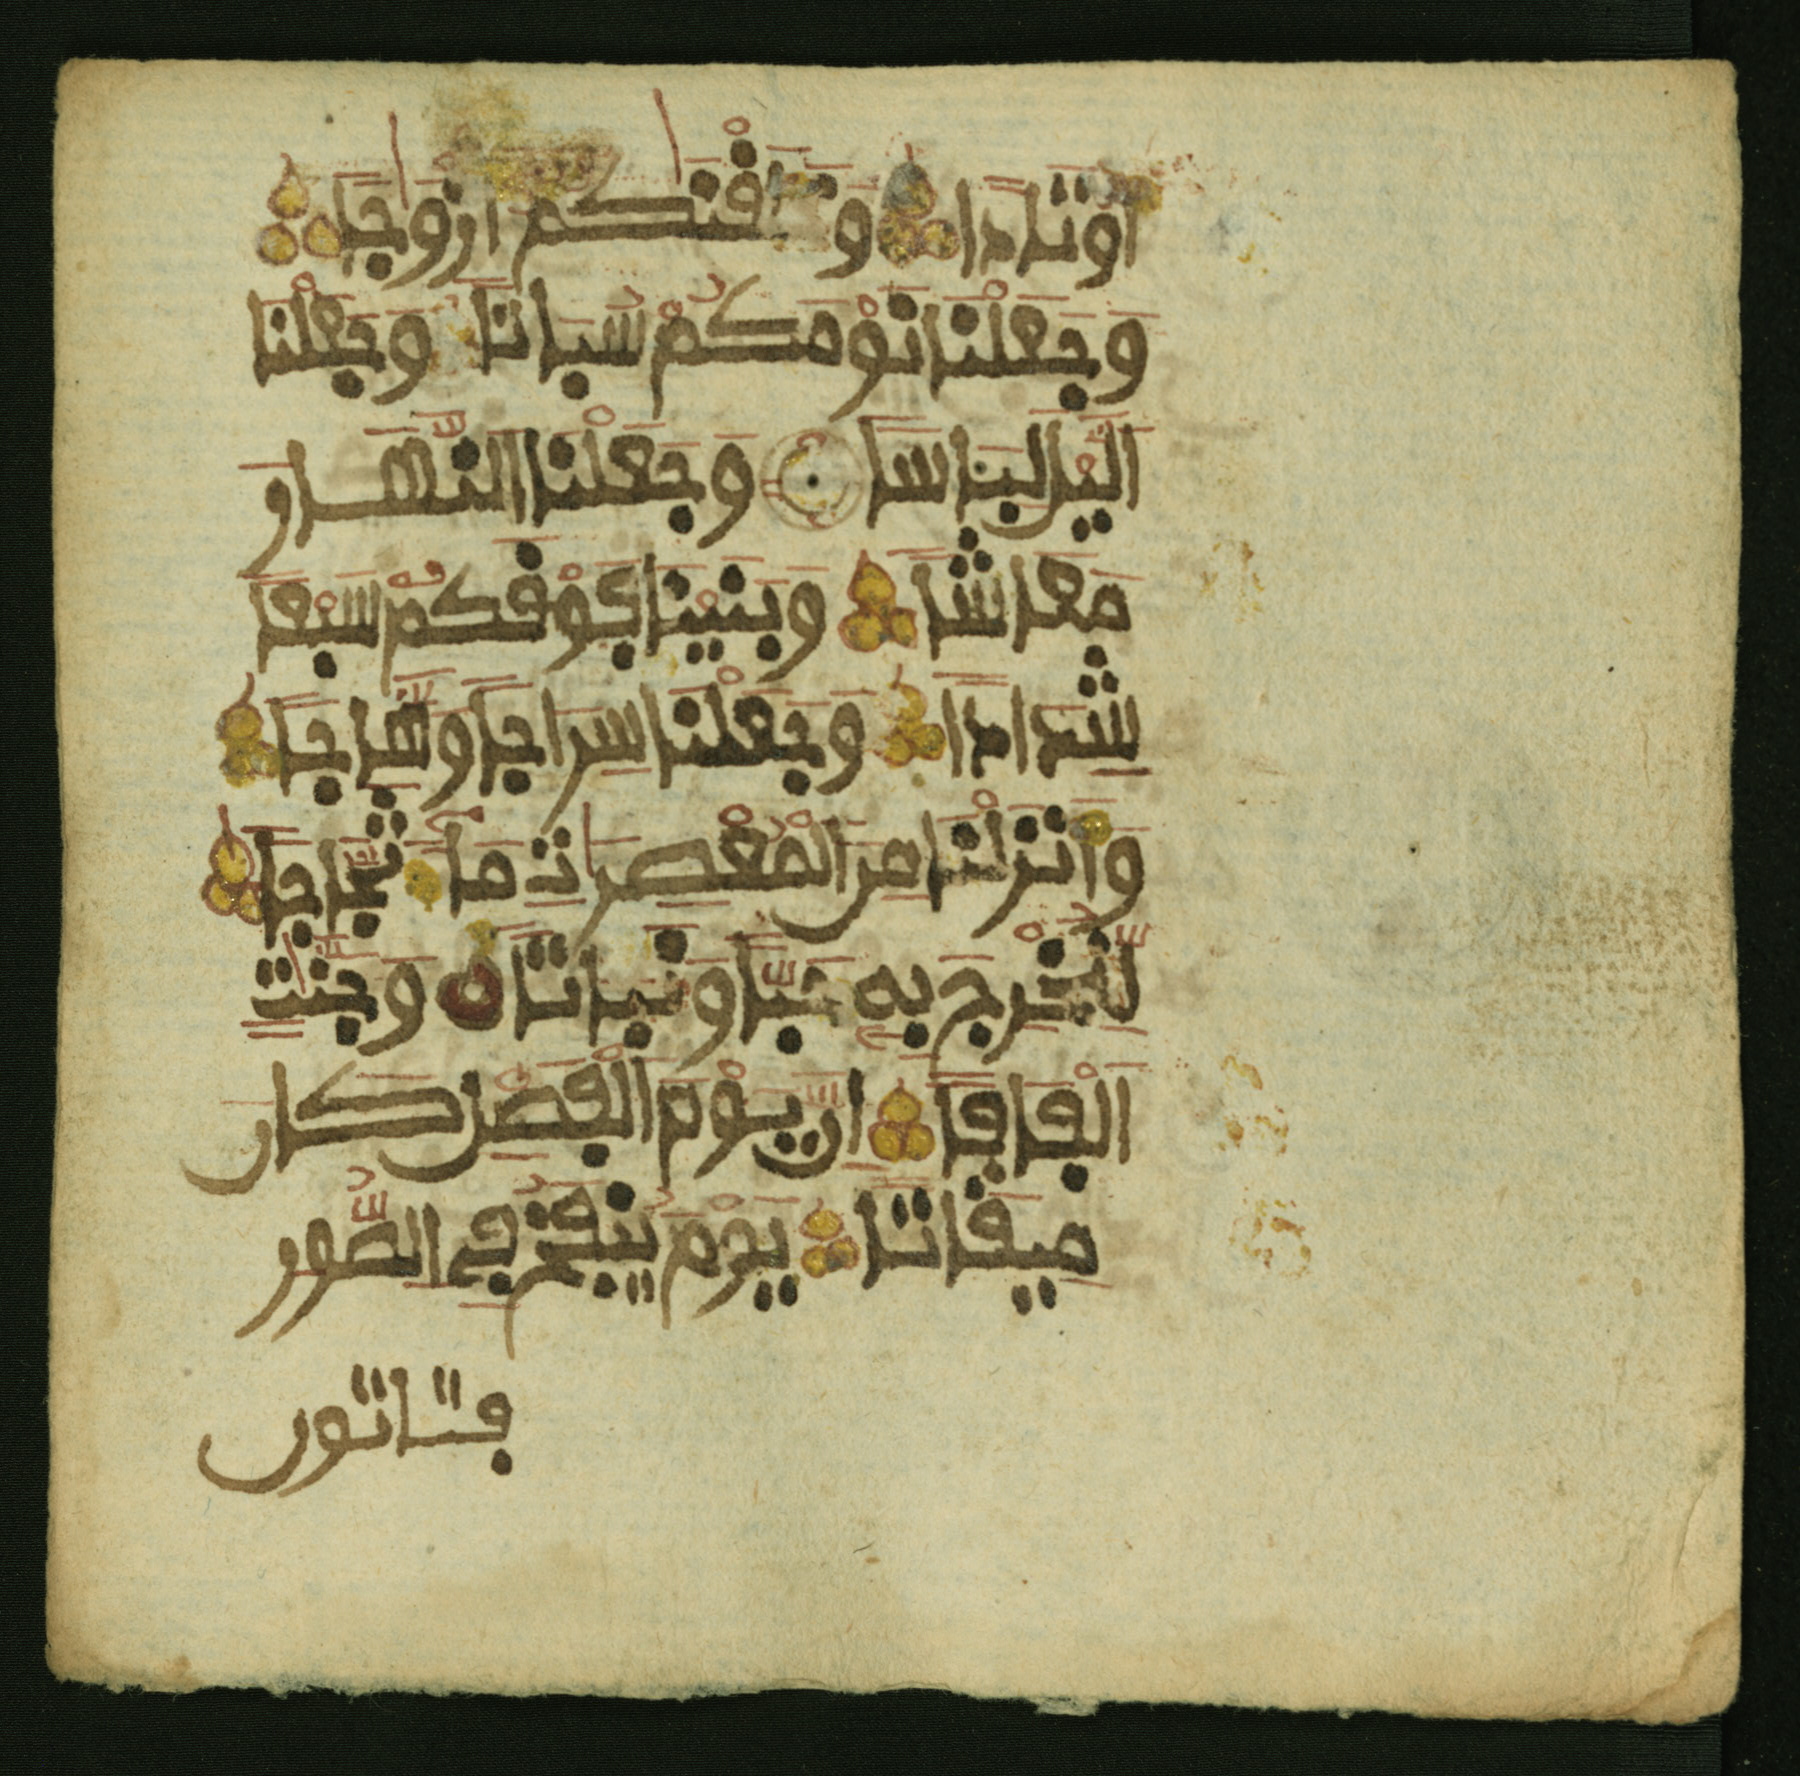 أَوْتَادًا وَخَلَقْنَٰكُمْ أَزْوَٰجًا
وَجَعَلْنَا نَوْمَكُمْ سُبَاتًا وَجَعَلْنَا
اَلَّيْلَ لِبَاسًا وَجَعَلْنَا اَلنَّهَارَ
مَعَاشًا وَبَنَيْنَا فَوْقَكُمْ سَبْعًا
شِدَادًا وَجَعَلْنَا سِرَاجًا وَهَّاجًا
وَأَنزَلْنَا مِنَ اَلْمُعْصِرَٰتِ مَآءً ثَجَّاجًا
لِّنُخْرِجَ بِهِۦ حَبًّا وَنَبَاتًا وَجَنَّٰتٍ
أَلْفَافًا إِنَّ يَوْمَ اَلْفَصْلِ كَانَ
مِيقَاتًا يَوْمَ يُنفَخُ فِي اِلصُّورِ
فتاتون